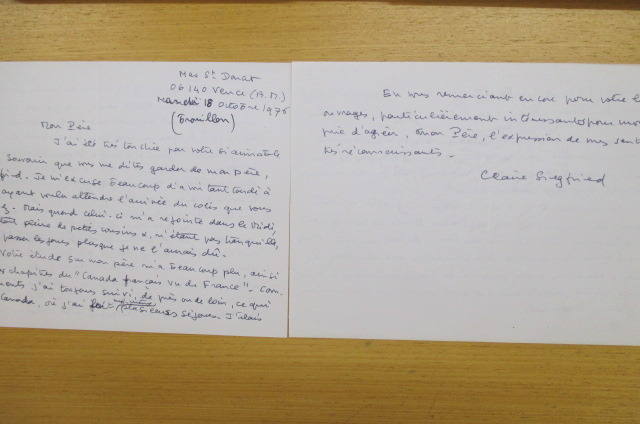 Mas St Donat
06140 Vence (A.M.)
Mardi 18 octobre 1976
(Brouillon)
Mon Père
J'ai été très touchée par votre si aimable
souvenir que vous me dites garder de mon père,
Je m'excuse beaucoup d'avoir tant tardé à
ayant voulu attendre l'arrivée du colis que vous
Mais quand celui-ci m'a rejointe dans le Midi,
tant pleine de petits cousins x, n'étant pas tranquille,
passer les jours plus que je ne l'aurais dû.
Votre étude sur mon père m'a beaucoup plu, ainsi
chapitres du "Canada français vu de France".
j'ai toujours suivi, de près ou de loin, ce qui
Canada, où j'ai fait plusieurs séjours. J'étais
En vous remerciant encore pour votre
ouvrages, particulièrement intéressants pour
prie d'agréer, mon Père, l'expression de mes
très reconnaissants.
Claire Siegfried